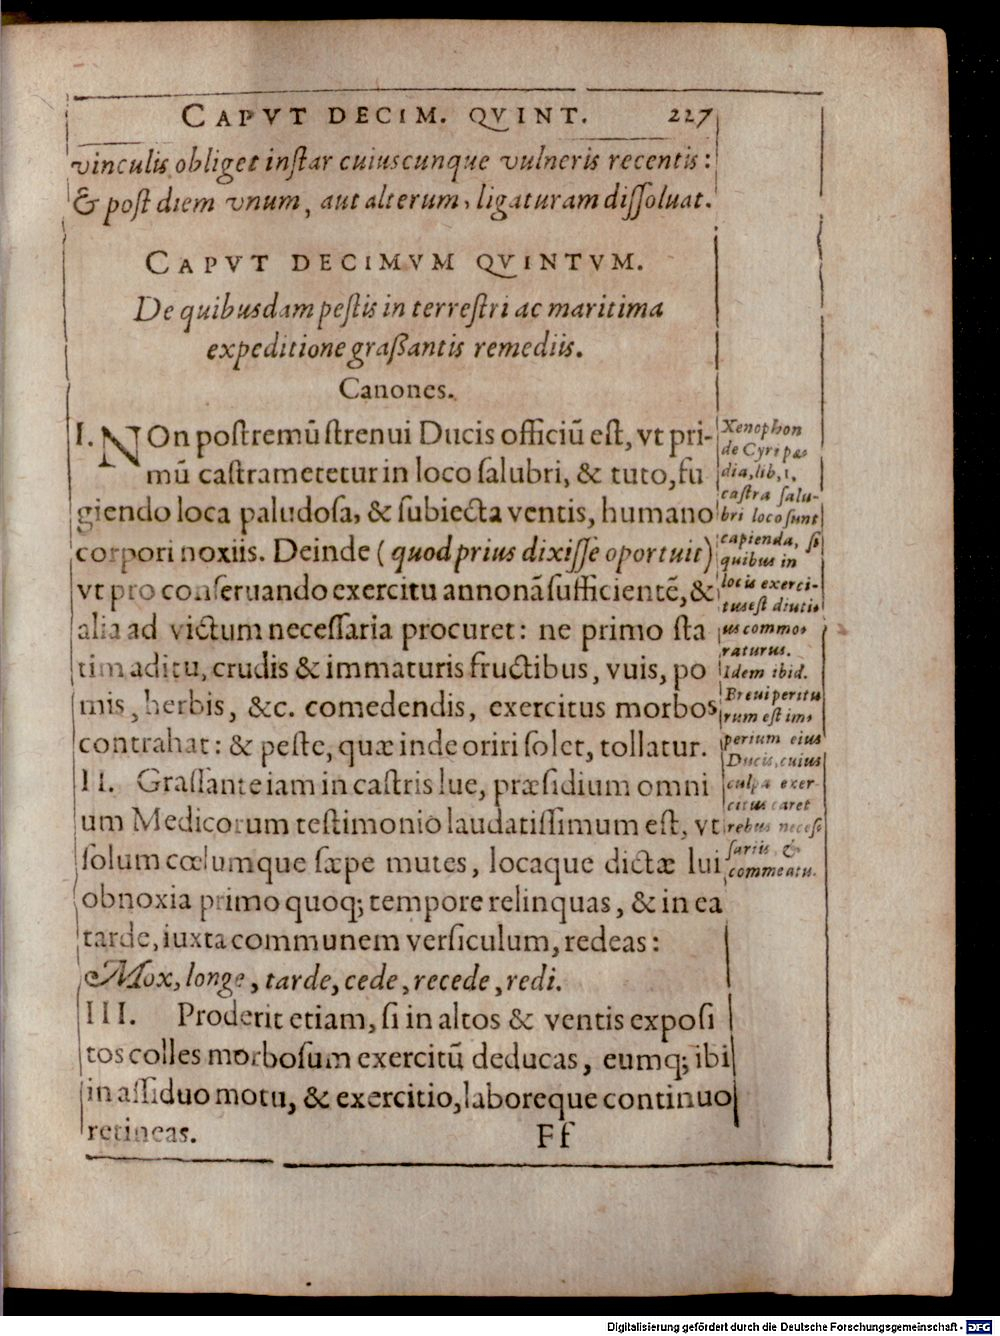 CAPVT DECIM. QVINT. 227
vinculis obliget instar cuiuscunque vulneris recentis:
& post diem vnum, aut alterum, ligaturam dissoluat.
CAPVT DECIMVM QVINTVM.
De quibusdam pestis in terrestri ac maritima
expeditione graßantis remediis.
Canones.
I. NOn postremū strenui Ducis officiū est, vt pri-
mū castrametetur in loco salubri, & tuto, fu
giendo loca paludosa, & subiecta ventis, humano
corpori noxiis. Deinde (quod prius dixisse oportuit)
vt pro conseruando exercitu annonā sufficientē, &
alia ad victum necessaria procuret: ne primo sta
tim aditu, crudis & immaturis fructibus, vuis, po
mis, herbis, &c. comedendis, exercitus morbos
contrahat: & peste, quæ inde oriri solet, tollatur.
II. Grassante iam in castris lue, præsidium omni
um Medicorum testimonio laudatissimum est, vt
solum cœlumque sæpe mutes, locaque dictæ lui
obnoxia primo quoq; tempore relinquas, & in ea
tarde, iuxta communem versiculum, redeas:
Mox, longe, tarde, cede, recede, redi.
III. Proderit etiam, si in altos & ventis exposi
tos colles morbosum exercitū deducas, eumq; ibi
in assiduo motu, & exercitio, laboreque continuo
retineas.
Ff
Xenophon
de Cyripæ-
dia, lib, 1,
castra salu-
bri loco sunt
capienda, si
quibus in
locis exerci-
tus est diuti-
us commo-
raturus.
Idem ibid.
Breui peritu
rum est im-
perium eius
Ducis, cuius
culpa exer-
citus caret
rebus neces
sariis, &
commeatu.
Digitalisierung gefördert durch die Deutsche Forschungsgemeinschaft - DFG